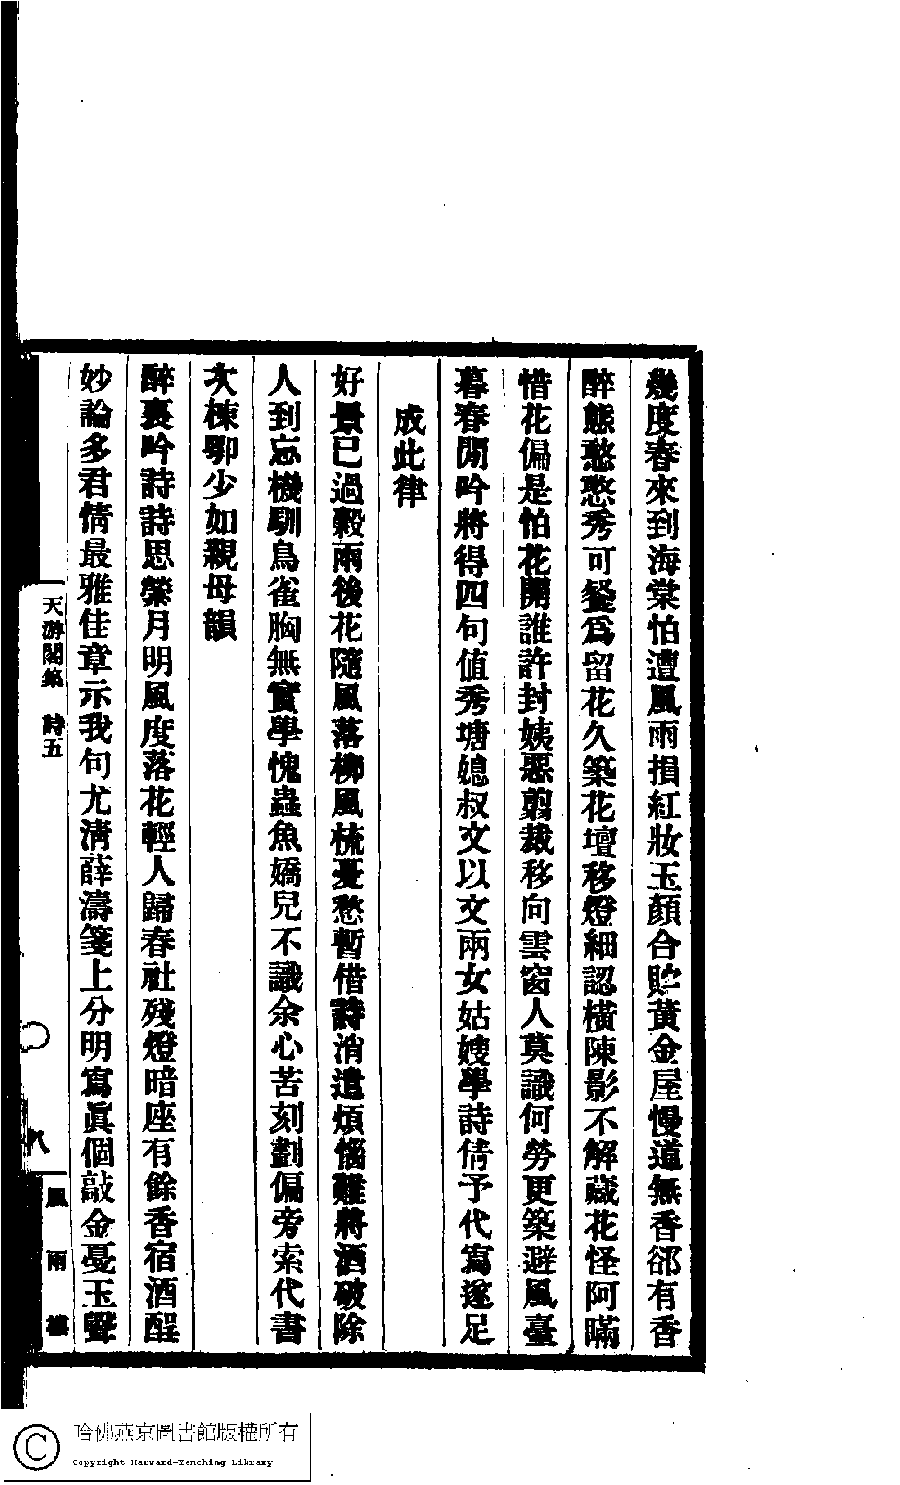 幾度春來到海棠怕遭風雨損紅妝玉顏合貯黃金屋慢道無香卻有香
醉態憨憨秀可餐爲留花久築花壇移燈細認橫陳影不解藏花怪阿瞞
惜花偏是怕花開誰許封姨惡剪裁移向雲窗人莫識何勞更築避風臺
暮春閒吟將得四句值秀塘媳叔文以文兩女姑嫂學詩倩予代寫遂足
成此律
好景已過穀雨後花隨風落柳風梳憂愁暫借詩消遣煩惱難將酒破除
人到忘機馴鳥雀胸無實學愧蟲魚嬌兒不識余心苦刻劃偏旁索代書
次棟鄂少如親母韻
醉裏吟詩詩思縈月明風度落花輕人歸春社殘燈暗座有餘香宿酒酲
妙論多君情最雅佳章示我句尤清薛濤箋上分明寫眞個敲金戞玉聲
天游閣集 詩五
八
風雨樓
哈佛燕京圖書館版權所有
Copyright Harvard-Yenching Library